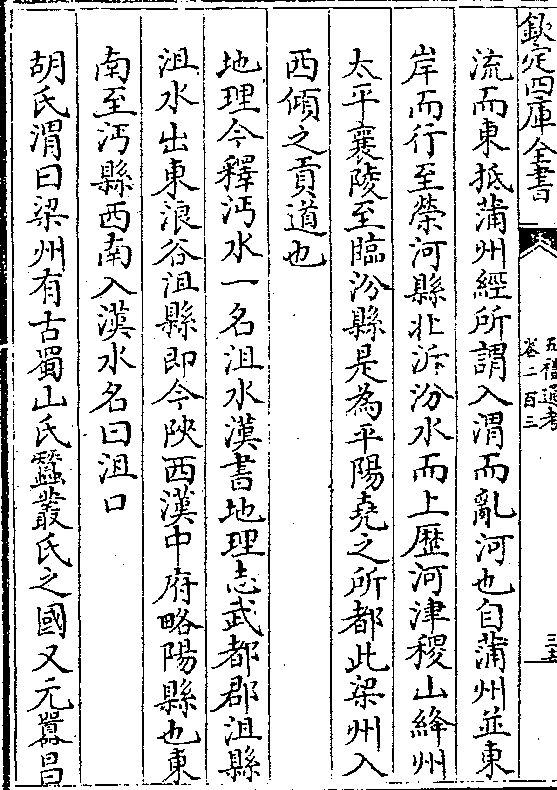 欽定四庫全書
五禮通考
卷二百三
三五
流而東抵蒲州經所謂入渭而亂河也自蒲州並東
岸而行至榮河縣北泝汾水而上歴河津稷山絳州
太平襄陵至臨汾縣是為平陽堯之所都此梁州入
西傾之貢道也
地理今釋沔水一名沮水漢書地理志武都郡沮縣
沮水出東浪谷沮縣即今陜西漢中府略陽縣也東
南至沔縣西南入漢水名曰沮口
胡氏渭曰梁州有古蜀山氏蠶叢氏之國又元囂昌